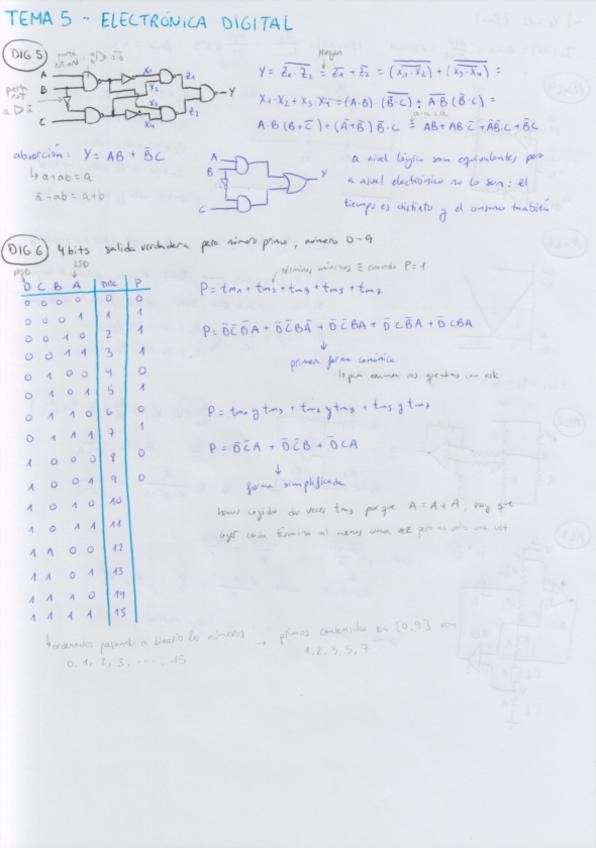 TEMA 5 - ELECTRÓNICA DIGITAL
DIG 5
puerta
A
B
C
X1
X2
X3
X4
Z1
Z2
Y
Morgan
Y = \overline{Z1·Z2} = \overline{Z1} + \overline{Z2} = (\overline{\overline{X1·X2}}) + (\overline{\overline{X3·X4}}) =
X1·X2 + X3·X4 = (A·B)·(\overline{\overline{B}·C}) + \overline{A·B}(\overline{B}·C) =
A·B(B+\overline{C}) + (\overline{A}+\overline{B})\overline{B}·C = AB + AB\overline{C} + \overline{A}\overline{B}·C + \overline{B}C
absorción: Y = AB + \overline{B}C
a+ab = a
\overline{a}+ab = \overline{a}+b
A
B
C
Y
a nivel lógico son equivalentes pero
a nivel electrónico no lo son: el
tiempo es distinto y el consumo también
DIG 6 4 bits salida verdadera para número primo, número 0-9
MSB LSD
D C B A DEC P
0 0 0 0 0 0
0 0 0 1 1 1
0 0 1 0 2 1
0 0 1 1 3 1
0 1 0 0 4 0
0 1 0 1 5 1
0 1 1 0 6 0
0 1 1 1 7 1
1 0 0 0 8 0
1 0 0 1 9 0
1 0 1 0 10
1 0 1 1 11
1 1 0 0 12
1 1 0 1 13
1 1 1 0 14
1 1 1 1 15
términos mínimos ≡ cuando P=1
P = tm1 + tm2 + tm3 + tm5 + tm7
P = \overline{D}\overline{C}\overline{B}A + \overline{D}\overline{C}B\overline{A} + \overline{D}\overline{C}BA + \overline{D}C\overline{B}A + \overline{D}CBA
primera forma canónica
para examen nos quedamos con esta
P = tm1 y tm3 + tm2 y tm3 + tm5 y tm7
P = \overline{D}\overline{C}A + \overline{D}\overline{C}B + \overline{D}CA
forma simplificada
hemos cogido dos veces tm3 porque A = A+A, hay que
coger cada término al menos una vez pero no solo una vez
ordenados pasando a binario los números → primos contenidos en [0,9] son
0, 1, 2, 3, ..., 15
1, 2, 3, 5, 7